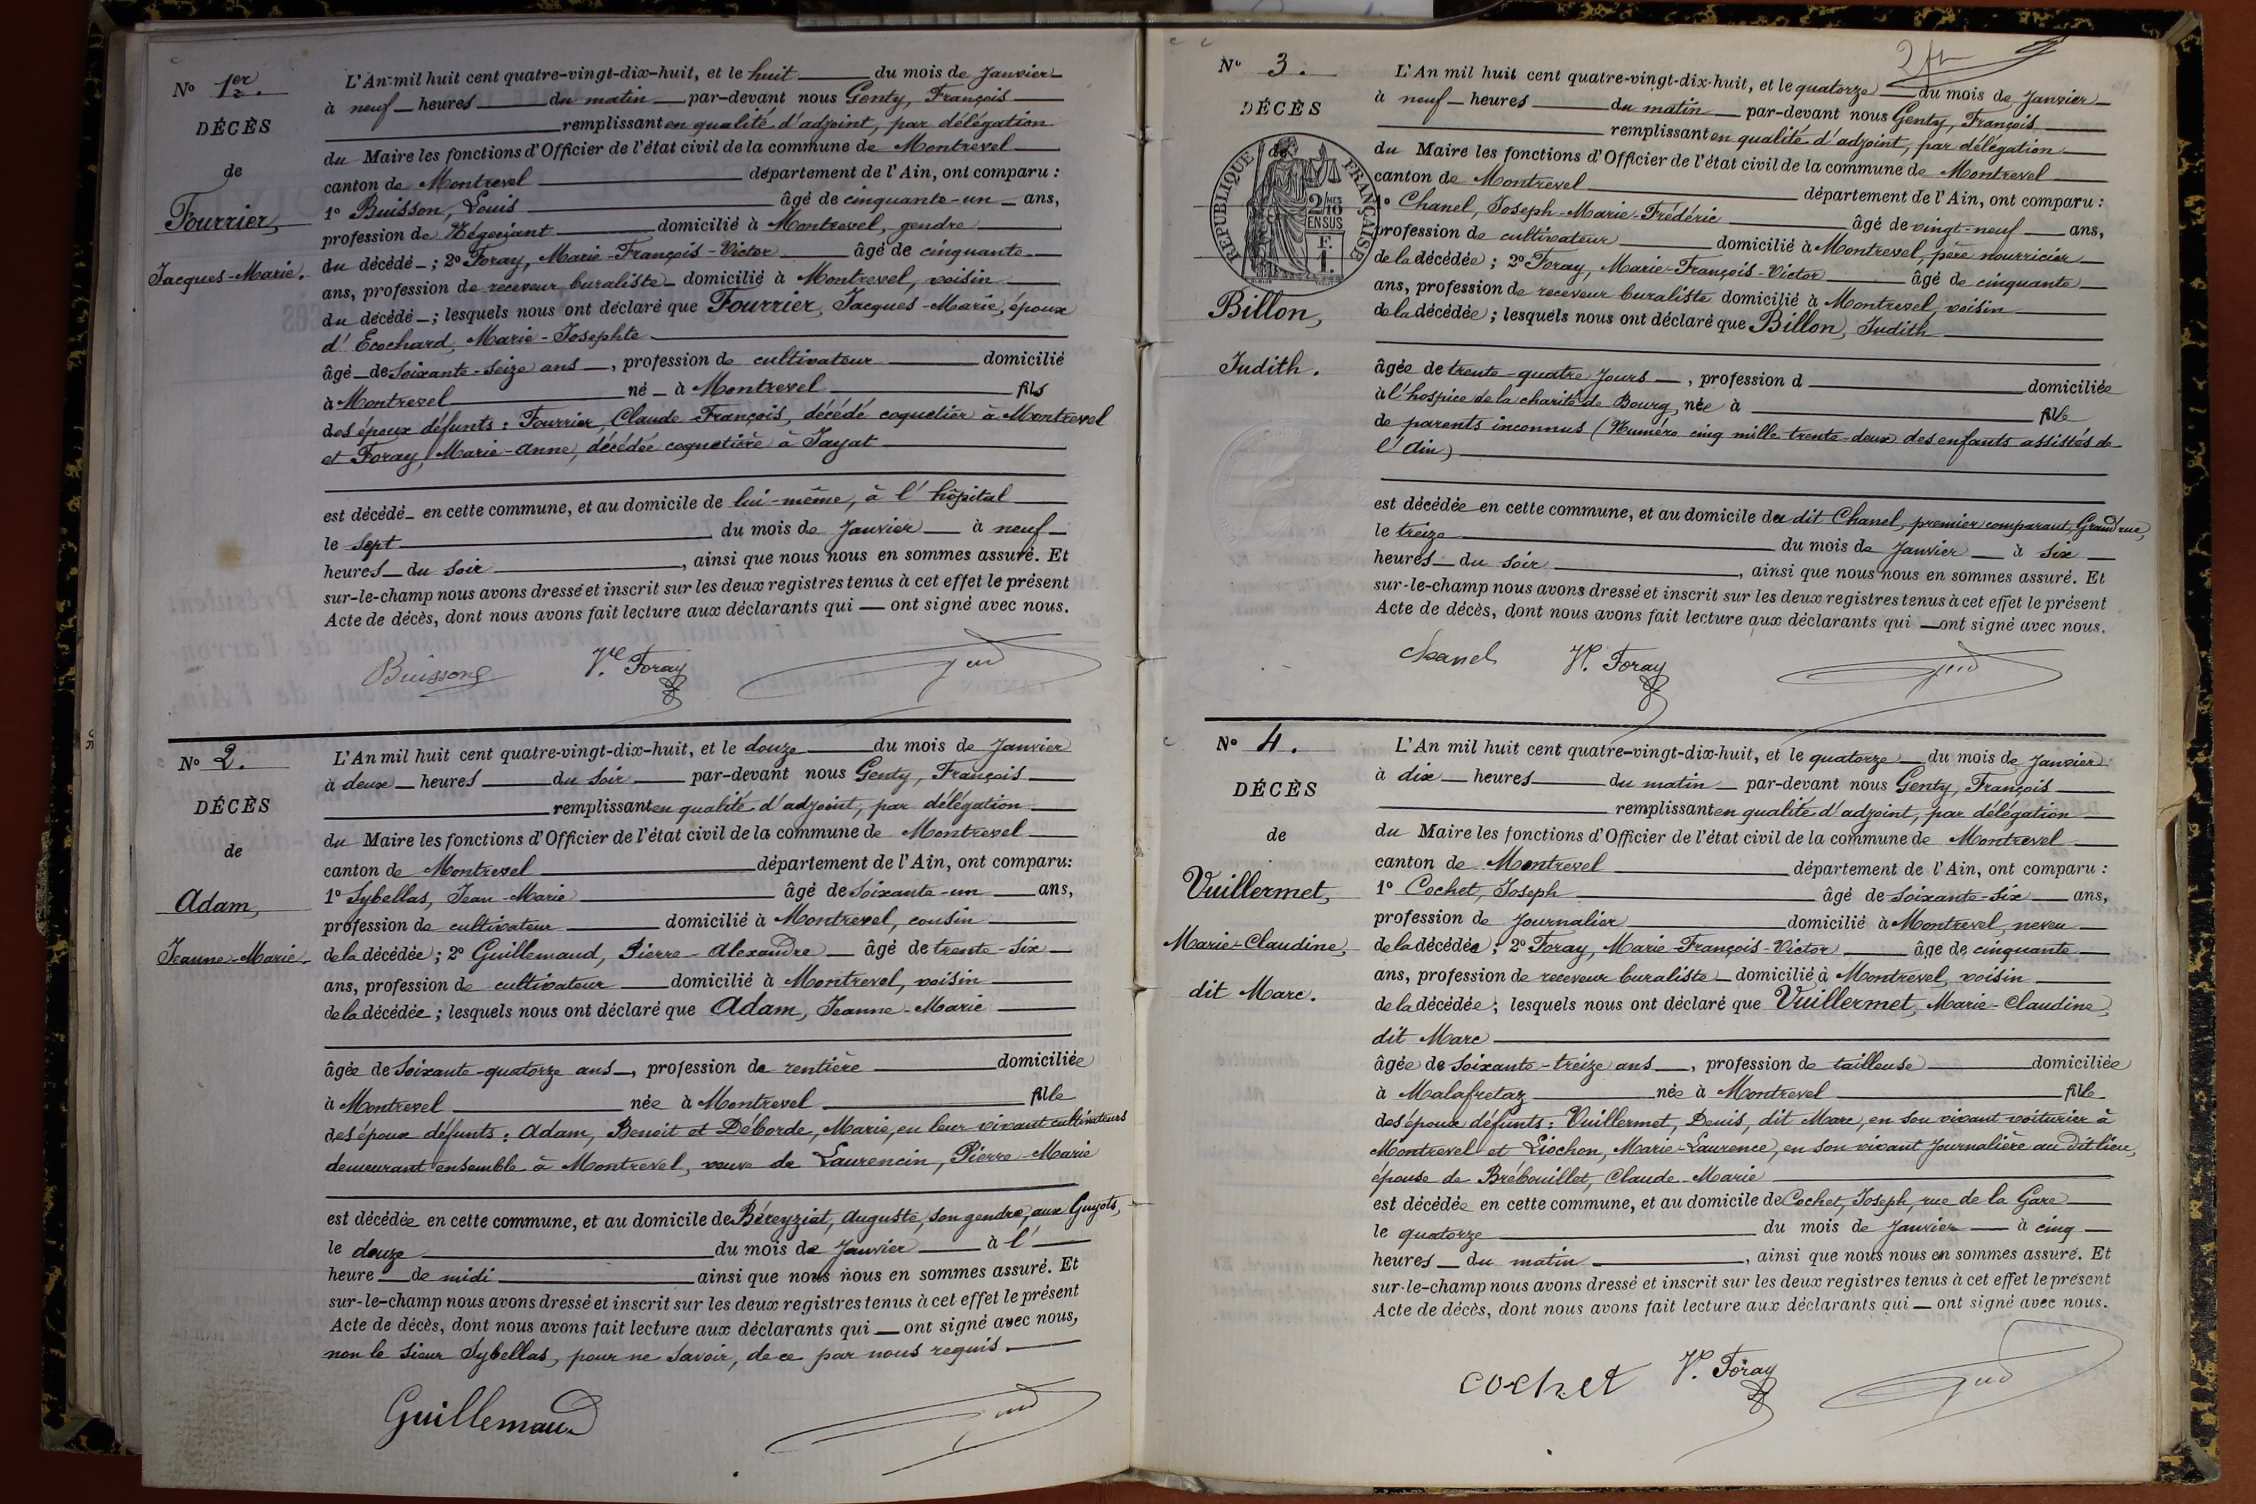 No 1er.
DÉCÈS
de
Fourrier,
Jacques-Marie.
L'An mil huit cent quatre-vingt-dix-huit, et le huit du mois de Janvier
à neuf heures du matin par-devant nous Genty, François
remplissant en qualité d'adjoint, par délégation
du Maire les fonctions d'Officier de l'état civil de la commune de Montrevel
canton de Montrevel département de l'Ain, ont comparu :
1o Buisson, Louis âgé de cinquante-un ans,
profession de Négociant domicilié à Montrevel, gendre
du décédé ; 2o Foray, Marie-François-Victor âgé de cinquante
ans, profession de receveur buraliste domicilié à Montrevel, voisin
du décédé ; lesquels nous ont déclaré que Fourrier, Jacques-Marie, époux
d'Ecochard, Marie-Josephte
âgé de soixante-seize ans, profession de cultivateur domicilié
à Montrevel né à Montrevel fils
des époux défunts : Fourrier, Claude-François, décédé coquetier à Montrevel
et Foray, Marie-Anne, décédée coquetière à Jayat
est décédé en cette commune, et au domicile de lui-même, à l'hôpital
le sept du mois de Janvier à neuf
heures du soir, ainsi que nous nous en sommes assuré. Et
sur-le-champ nous avons dressé et inscrit sur les deux registres tenus à cet effet le présent
Acte de décès, dont nous avons fait lecture aux déclarants qui ont signé avec nous.
Buisson V. Foray
No 2.
DÉCÈS
de
Adam,
Jeanne-Marie
L'An mil huit cent quatre-vingt-dix-huit, et le douze du mois de Janvier
à deux heures du soir par-devant nous Genty, François
remplissant en qualité d'adjoint, par délégation
du Maire les fonctions d'Officier de l'état civil de la commune de Montrevel
canton de Montrevel département de l'Ain, ont comparu:
1o Sybellas, Jean-Marie âgé de soixante-un ans,
profession de cultivateur domicilié à Montrevel, cousin
de la décédée ; 2o Guillemaud, Pierre-Alexandre âgé de trente-six
ans, profession de cultivateur domicilié à Montrevel, voisin
de la décédée ; lesquels nous ont déclaré que Adam, Jeanne-Marie
âgée de soixante-quatorze ans, profession de rentière domiciliée
à Montrevel née à Montrevel fille
des époux défunts : Adam, Benoit et Déborde, Marie, en leur vivant cultivateurs
demeurant ensemble à Montrevel, veuve de Laurencin, Pierre-Marie
est décédée en cette commune, et au domicile de Béreyziat, Auguste, son gendre, aux Guyots,
le douze du mois de Janvier à l'
heure de midi ainsi que nous nous en sommes assuré. Et
sur-le-champ nous avons dressé et inscrit sur les deux registres tenus à cet effet le présent
Acte de décès, dont nous avons fait lecture aux déclarants qui ont signé avec nous,
non le sieur Sybellas, pour ne savoir, de ce par nous requis.
Guillemaud
No 3.
DÉCÈS
de
RÉPUBLIQUE FRANÇAISE
2/10MES
EN SUS
F.
1.
Billon,
Judith.
L'An mil huit cent quatre-vingt-dix-huit, et le quatorze du mois de Janvier
à neuf heures du matin par-devant nous Genty, François
remplissant en qualité d'adjoint, par délégation
du Maire les fonctions d'Officier de l'état civil de la commune de Montrevel
canton de Montrevel département de l'Ain, ont comparu :
1o Chanel, Joseph-Marie-Frédéric âgé de vingt-neuf ans,
profession de cultivateur domicilié à Montrevel, père nourricier
de la décédée ; 2o Foray, Marie-François-Victor âgé de cinquante
ans, profession de receveur buraliste domicilié à Montrevel, voisin
de la décédée ; lesquels nous ont déclaré que Billon, Judith
âgée de trente-quatre jours, profession d domiciliée
à l'hospice de la charité de Bourg, née à fille
de parents inconnus (Numéro cinq mille trente-deux des enfants assistés de
l'Ain)
est décédée en cette commune, et au domicile du dit Chanel, premier comparant, Grand'rue,
le treize du mois de Janvier à six
heures du soir, ainsi que nous nous en sommes assuré. Et
sur-le-champ nous avons dressé et inscrit sur les deux registres tenus à cet effet le présent
Acte de décès, dont nous avons fait lecture aux déclarants qui ont signé avec nous.
Chanel V. Foray
No 4.
DÉCÈS
de
Vuillermet,
Marie-Claudine,
dit Marc.
L'An mil huit cent quatre-vingt-dix-huit, et le quatorze du mois de Janvier
à dix heures du matin par-devant nous Genty, François
remplissant en qualité d'adjoint, par délégation
du Maire les fonctions d'Officier de l'état civil de la commune de Montrevel
canton de Montrevel département de l'Ain, ont comparu :
1o Cochet, Joseph âgé de soixante-six ans,
profession de journalier domicilié à Montrevel, neveu
de la décédée ; 2o Foray, Marie-François-Victor âgé de cinquante
ans, profession de receveur buraliste domicilié à Montrevel, voisin
de la décédée ; lesquels nous ont déclaré que Vuillermet, Marie-Claudine,
dit Marc
âgée de soixante-treize ans, profession de tailleuse domiciliée
à Malafretaz née à Montrevel fille
des époux défunts : Vuillermet, Denis, dit Marc, en son vivant voiturier à
Montrevel et Liochon, Marie-Laurence, en son vivant journalière au dit lieu,
épouse de Brébouillet, Claude-Marie
est décédée en cette commune, et au domicile de Cochet, Joseph, rue de la Gare
le quatorze du mois de Janvier à cinq
heures du matin, ainsi que nous nous en sommes assuré. Et
sur-le-champ nous avons dressé et inscrit sur les deux registres tenus à cet effet le présent
Acte de décès, dont nous avons fait lecture aux déclarants qui ont signé avec nous.
Cochet V. Foray